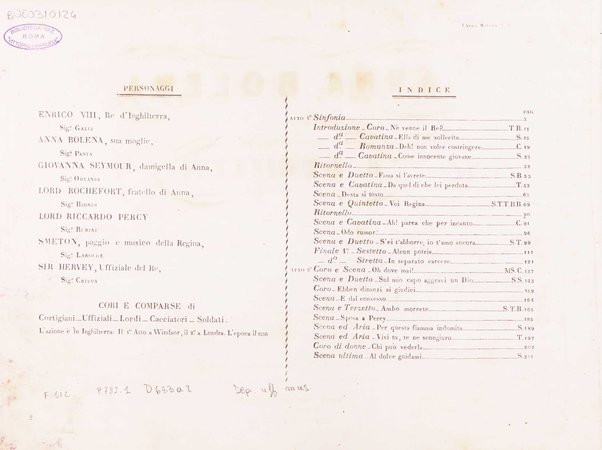 BOE0310124
BIBLIOTECA NAZ.
ROMA
VITTORIO EMANUELE
PERSONAGGI
ENRICO VIII, Re d'Inghilterra,
Sigr Galli
ANNA BOLENA, sua moglie,
Siga Pasta
GIOVANNA SEYMOUR, damigella di Anna,
Siga Orlandi
LORD ROCHEFORT, fratello di Anna,
Sigr Biondi
LORD RICCARDO PERCY
Sigr Rubini
SMETON, paggio e musico della Regina,
Siga Laroche
SIR HERVEY, Uffiziale del Re,
Sigr Crippa
CORI E COMPARSE di
Cortigiani _ Uffiziali _ Lordi _ Cacciatori _ Soldati.
L'azione è in Inghilterra: Il 1º Atto a Windsor, il 2º a Londra. L'epoca il 1536
INDICE
PAG
ATTO 1º Sinfonia 2
Introduzione _ Coro _ Nè venne il Re? T.B. 11
_ dª _ Cavatina _ Ella di me sollecita S. 15
_ dª _ Romanza _ Deh! non voler costringere C. 19
_ dª _ Cavatina _ Come innocente giovane S. 23
Ritornello 28
Scena e Duetto _ Fama sì l'avrete S.B. 33
Scena e Cavatina _ Da quel dì che lei perduta T. 52
Scena _ Desta sì tosto 65
Scena e Quintetto _ Voi Regina S.T.T.B.B. 69
Ritornello 90
Scena e Cavatina _ Ah! parea che per incanto C. 91
Scena _ Odo rumor! 96
Scena e Duetto _ S'ei t'abborre, io t'amo ancora S.T. 99
Finale 1º _ Sestetto _ Alcun potria 111
_ dº _ Stretta _ In separato carcere 121
ATTO 2º Coro e Scena _ Oh dove mai! MS C. 137
Scena e Duetto _ Sul mio capo aggravi un Dio S.S. 143
Coro _ Ebben dinanzi ai giudici 159
Scena _ E dal consesso 164
Scena e Terzetto _ Ambo morrete S.T.B. 165
Scena _ Sposa a Percy 185
Scena ed Aria _ Per questa fiamma indomita S. 189
Scena ed Aria _ Vivi tu, te ne scongiuro T. 197
Coro di donne _ Chi può vederla 207
Scena ultima _ Al dolce guidami S. 211
F. 512
P782.1
D683a2
Dep. uff mus